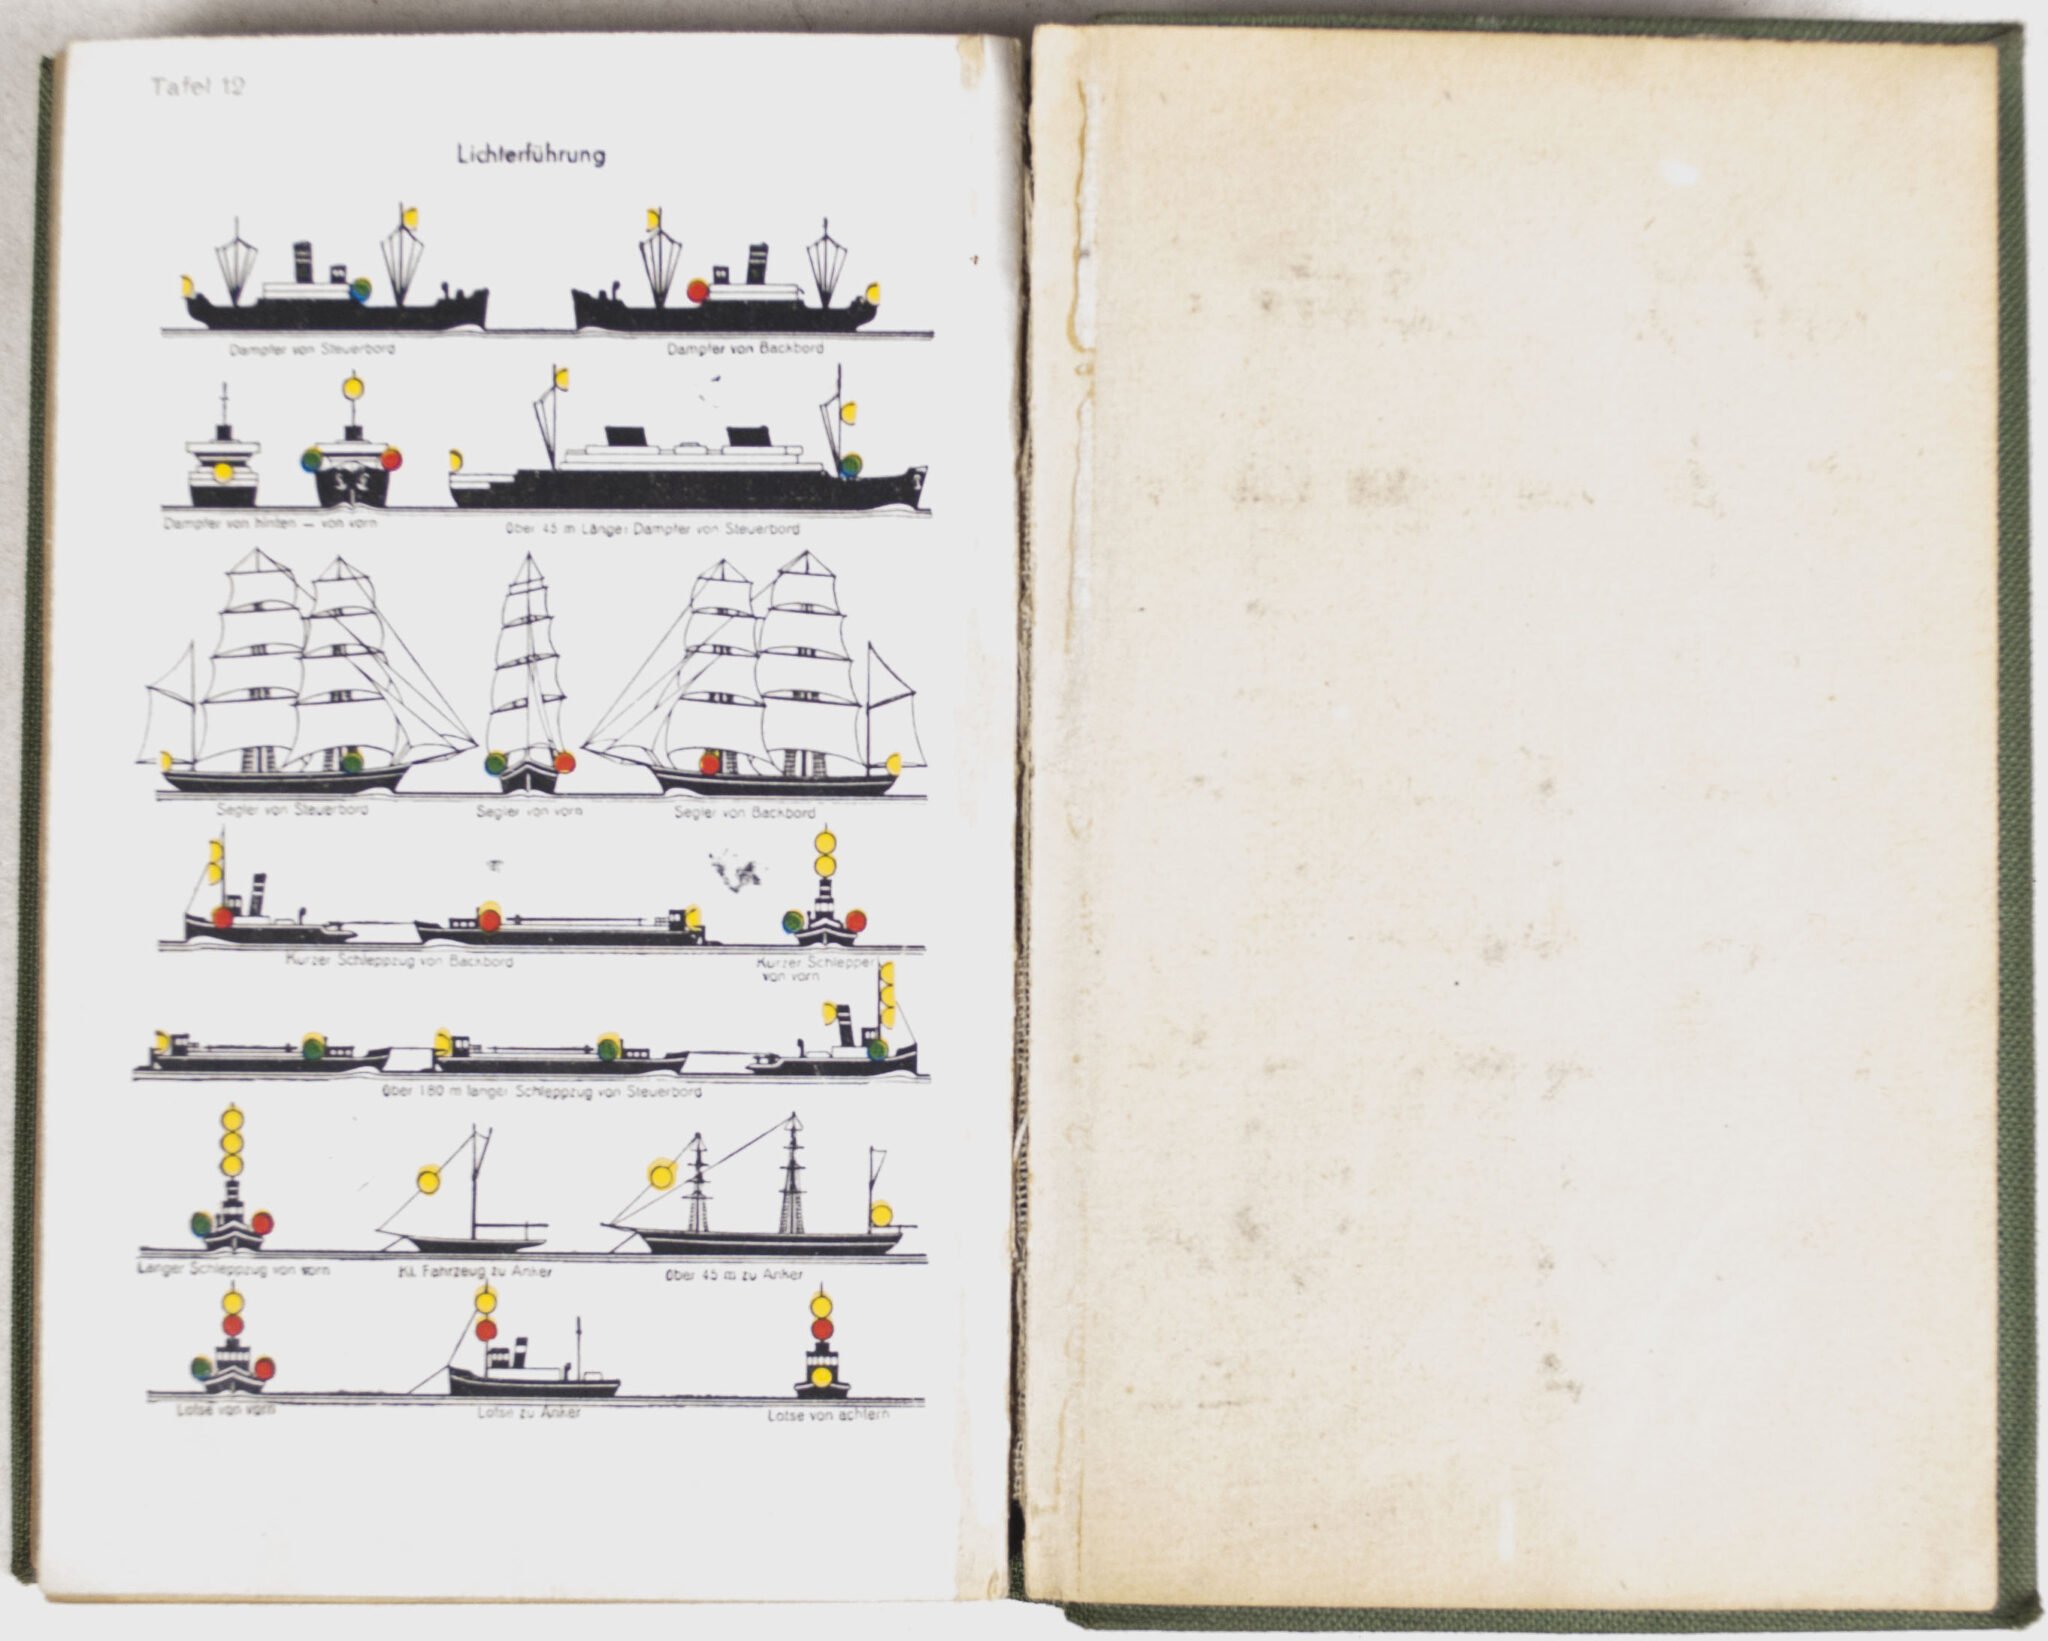 Tafel 12
Lichterführung
Dampfer von Steuerbord
Dampfer von Backbord
Dampfer von hinten – von vorn
Über 45 m Langer Dampfer von Steuerbord
Segler von Steuerbord
Segler von vorn
Segler von Backbord
Kurzer Schleppzug von Backbord
Kurzer Schlepper
von vorn
Über 180 m langer Schleppzug von Steuerbord
Langer Schleppzug von vorn
Kl. Fahrzeug zu Anker
Über 45 m zu Anker
Lotse von vorn
Lotse zu Anker
Lotse von achtern